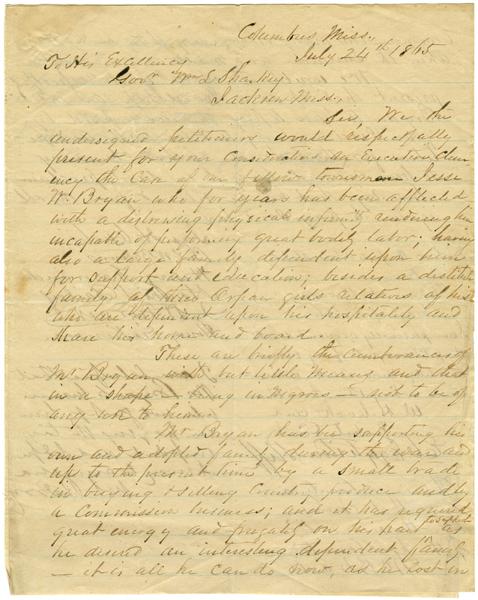 Columbus, Miss,
July 24th 1865
To His Excellency
Govr Wm L Sharkey
Jackson Miss,
Sir, We the
undersigned petitioners would respectfully
present for your consideration an Executive Clem
ency the case of our fellow townsman Jesse
W. Bryan who for years has been afflicted
with a distressing physical infirmity rendering him
incapable of performing great bodily labor; having
also a large family dependent upon him
for support and education; besides a destitute
family of orpan girls relations of his
who are dependent upon his hospitality and
share his home and board.
These are briefly the incumbrances of
Mr Bryan with but little means and that
in a shape — being in Negroes — not to be of
any use to him.
Mr Bryan has be supporting his
own and adopted family during the war and
up to the present time by a small trade
in buying & selling Country produce and by
a Commission business; and it has required
great energy and frugality on his part to support as
he desired an interesting dependent family
— it is all he can do now, as he lost in